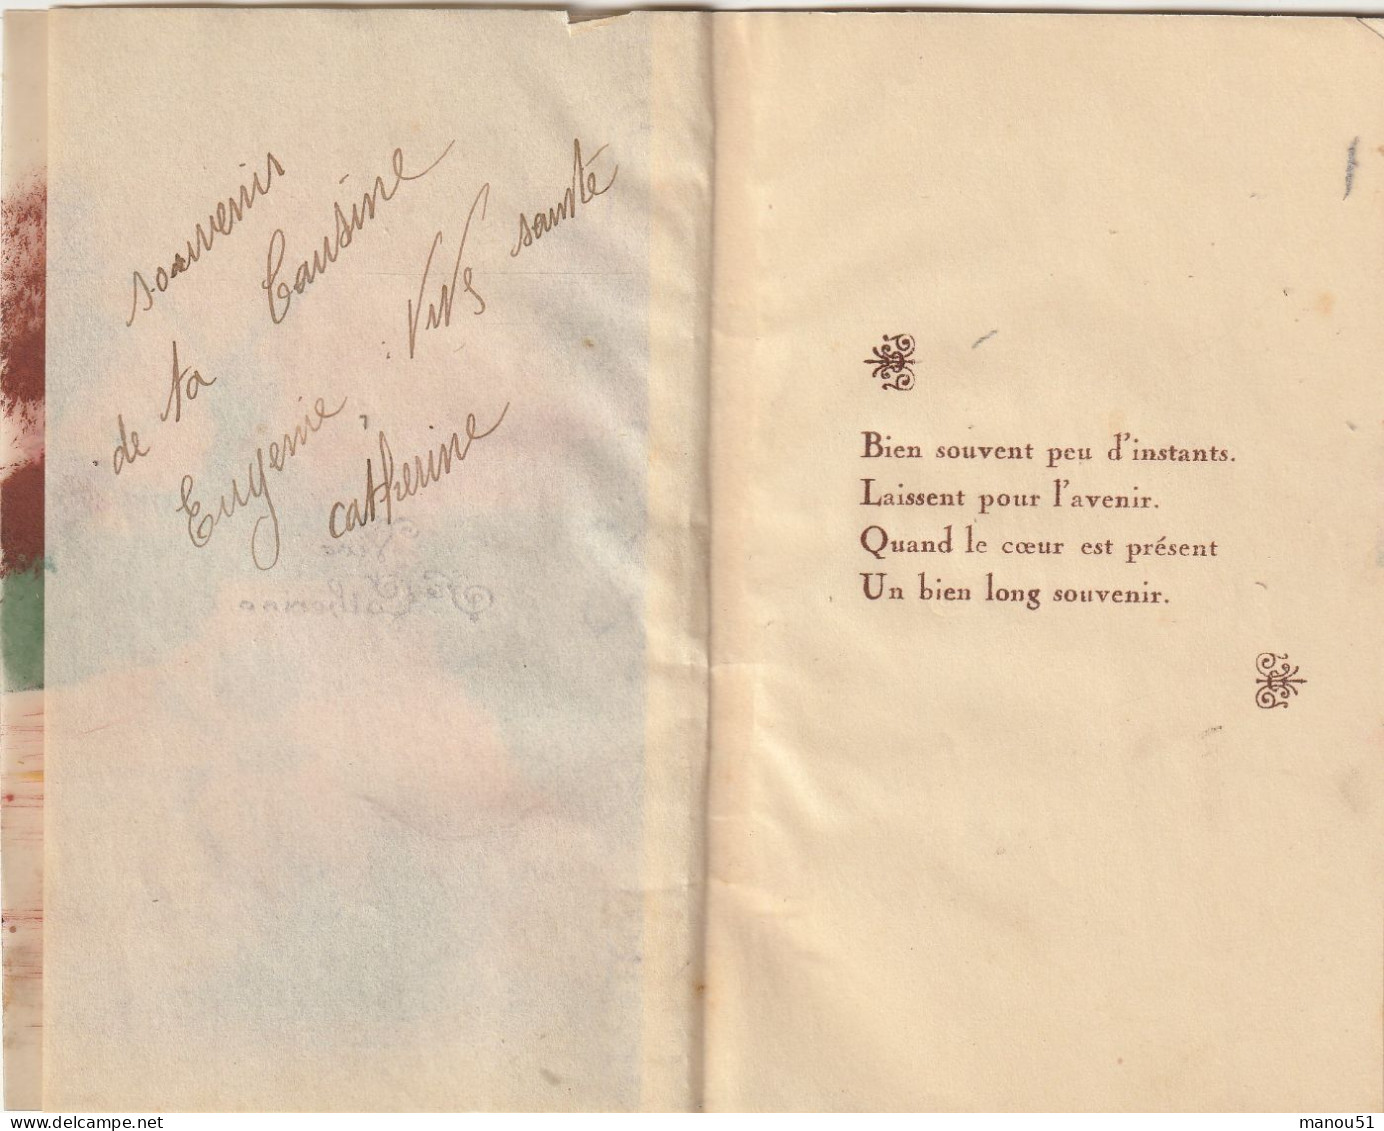 souvenir
de ta Cousine
Eugenie. Vive sainte
catherine
Vive
Ste
Catherine
Bien souvent peu d'instants.
Laissent pour l'avenir.
Quand le cœur est présent
Un bien long souvenir.
www.delcampe.net
manou51